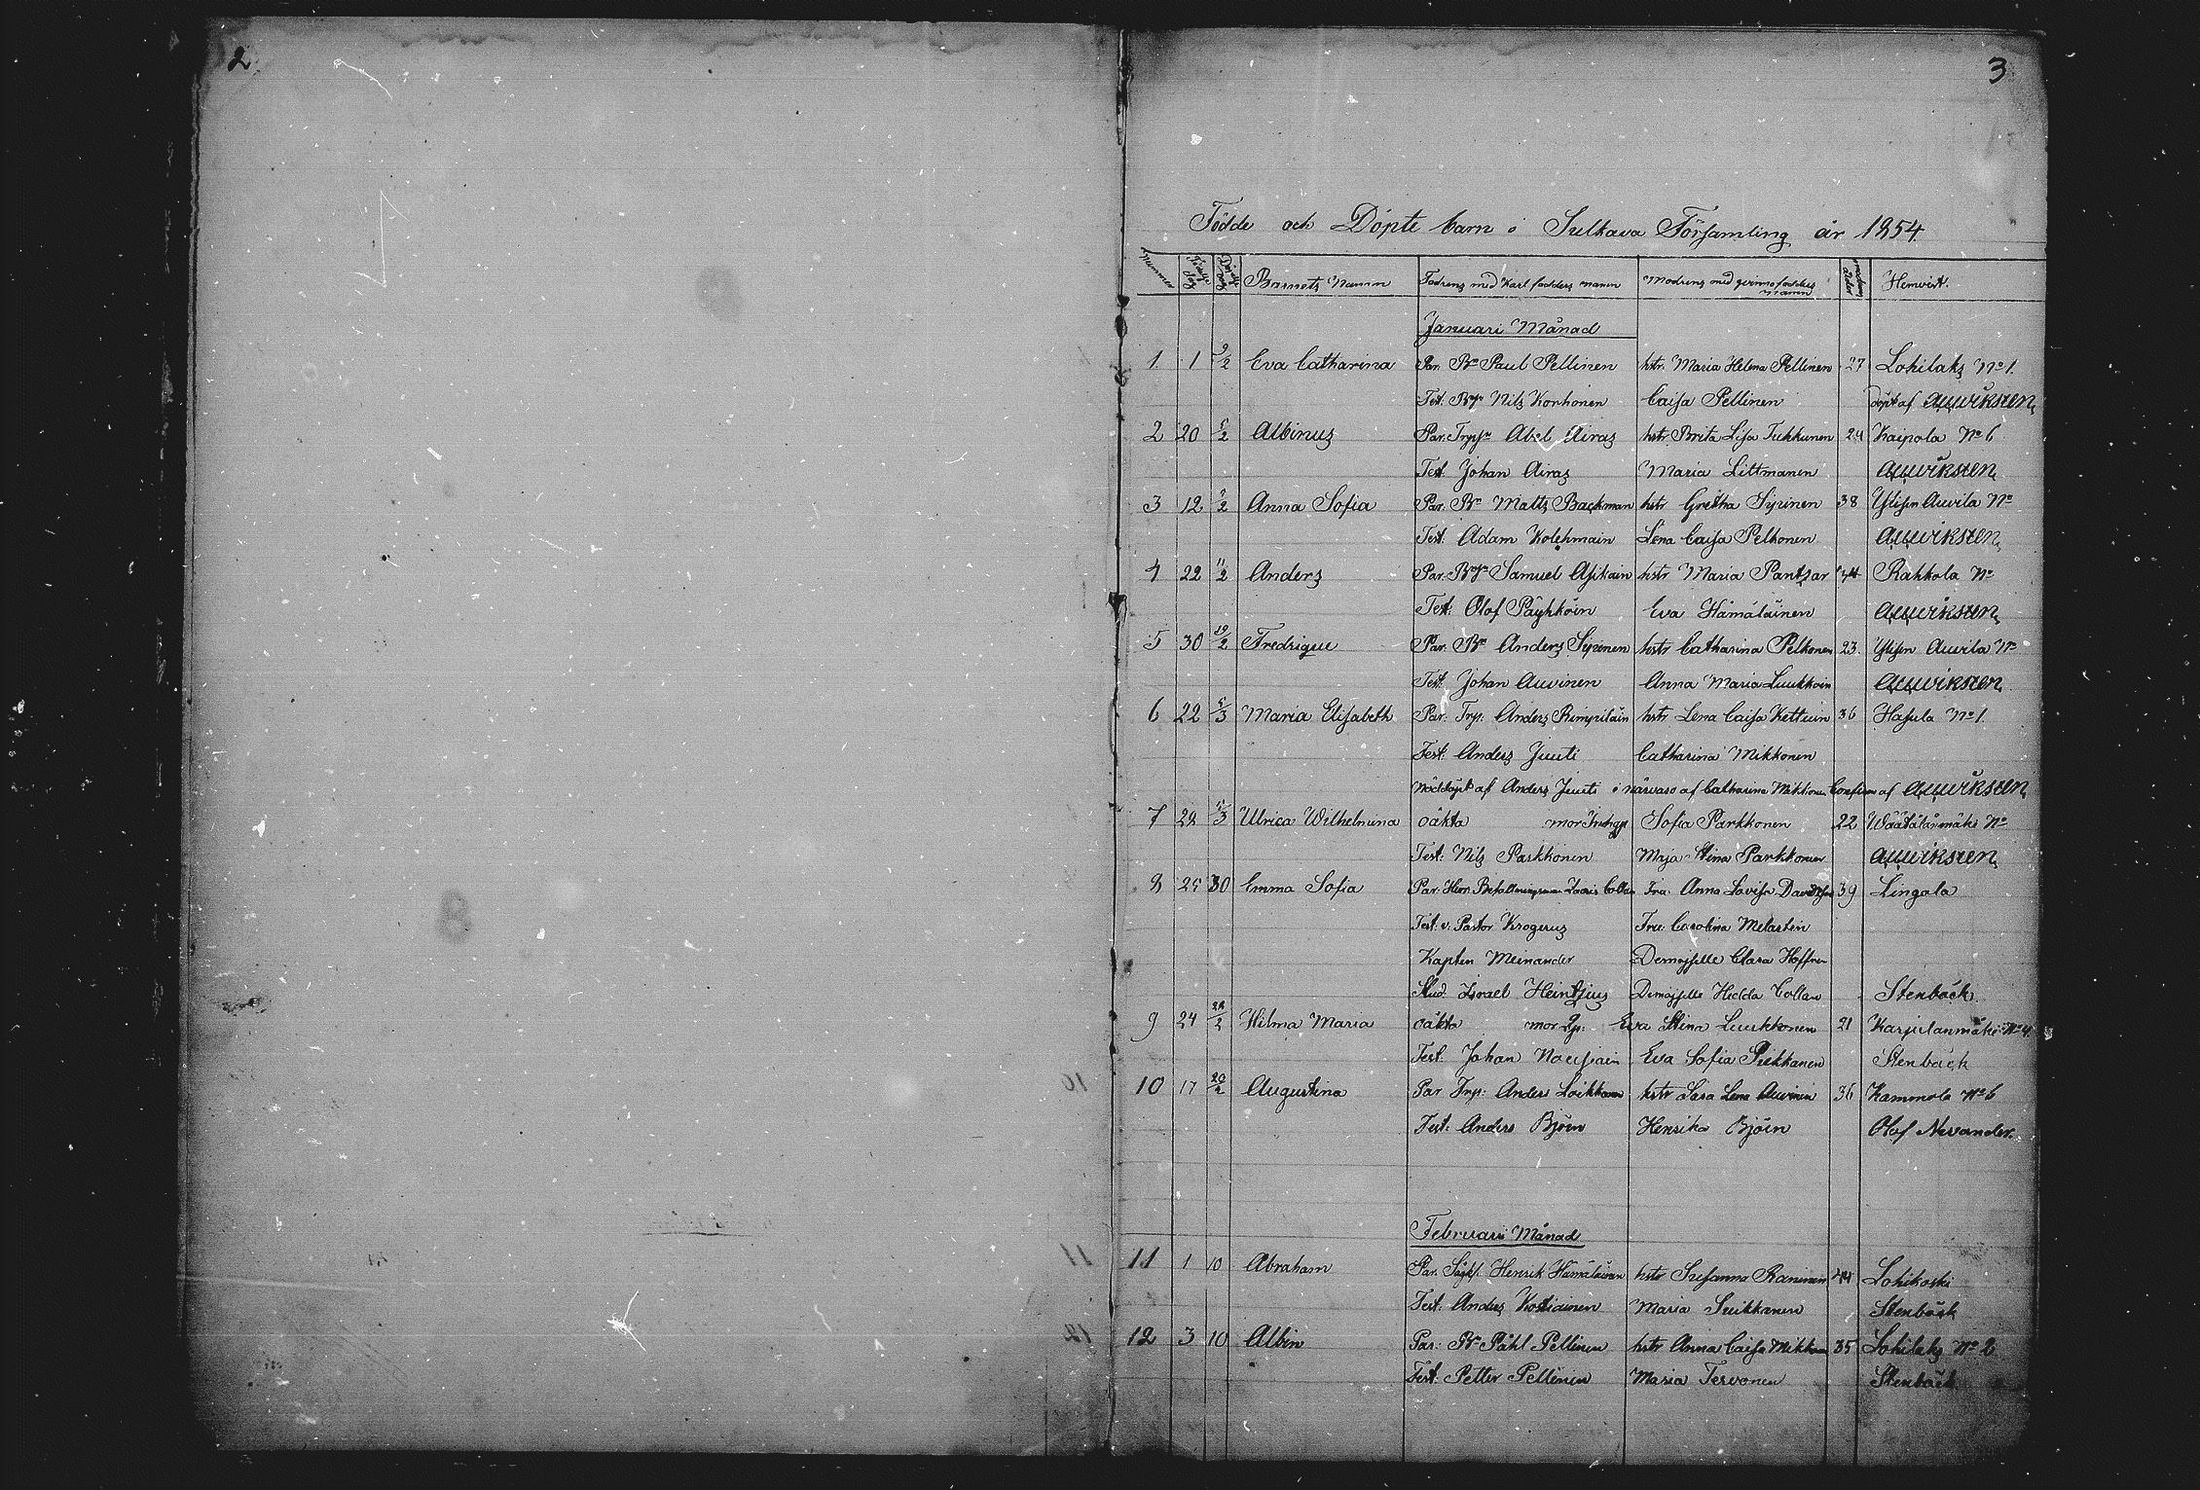 2
3
Födde och Döpte barn i Sulkava Församling år 1854
Nummer Födelse dag Döpelse dag Barnets Namn Fadrens med Karl fadders namn Modrens med qvinnofadders namn Modrens ålder Hemvist.
Januari Månad
1 1 5/2 Eva Catharina Par. Bn Paul Pellinen hstr. Maria Helena Pellinen 27 Lohilaks No 1.
Test: Nils Korhonen Caisa Pellinen döpt af Auviksten
2 20 5/2 Albinus Par. Abel Airas hstr Brita Lisa Tukkunen 24 Kaipola No 6
Test Johan Airas Maria Littmanen Auviksten
3 12 5/2 Anna Sofia Par. Bn Matts Backman hstr Gretha Syrinen 38 Auvila No
Test. Adam Kolehmain Lena Caisa Pelkonen Auviksten
4 22 11/2 Anders Par. Samuel Asikain hstr Maria Pantsar 44 Rahkola No
Test: Olof Päyhköin Eva Hämäläinen Auviksten
5 30 19/2 Fredrique Par. Bn Anders Syrenen hstr Catharina Pelkonen 23. Auvila No
Test. Johan Auvinen Anna Maria Luukkoin Auviksten
6 22 5/3 Maria Elisabeth Par. Trp. Anders Rimpiläin hstr Lena Caisa Kettuin 36 Hasula No 1.
Test. Anders Juuti Catharina Mikkonen
Nöddöpt af Anders Juuti i närvaro af Catharina Mikkonen Confirm af Auviksten
7 29 5/3 Ulrica Wilhelmina oäkta mor Sofia Parkkonen 22 Wäätälänmäki No
Test: Nils Parkkonen Maja Stina Parkkonen Auviksten
8 25 30 Emma Sofia Par. Herr Collan Fru Anna Lovisa Davidson 39 Lingola
Test: v. Pastor Krogerus Fru Carolina Melartin
Kapten Meinander Demoiselle Clara Hoffren
Stud. Israel Heintzius Demoiselle Hedda Collan Stenbäck
9 24 22/2 Hilma Maria oäkta mor Eva Stina Luukkonen 21 Karjulanmäki No 4
Test. Johan Nousiain Eva Sofia Puikkonen Stenbäck
10 17 20/2 Augustina Par Trp: Anders Loikkanen hstr Sara Lena Auvinen 36 Kammola No 6
Test: Anders Björn Henrika Björn Olof Nevander.
Februari Månad
11 1 10 Abraham Par. Henrik Hämäläinen hstr Susanna Raninen 44 Lohikoski
Test: Anders Kostiainen Maria Suikkanen Stenbäck
12 3 10 Albin Par: Bn Påhl Pellinen hstr Anna Caisa Mikkonen 35 Lohilaks No 2
Test: Petter Pellinen Maria Tervonen Stenbäck